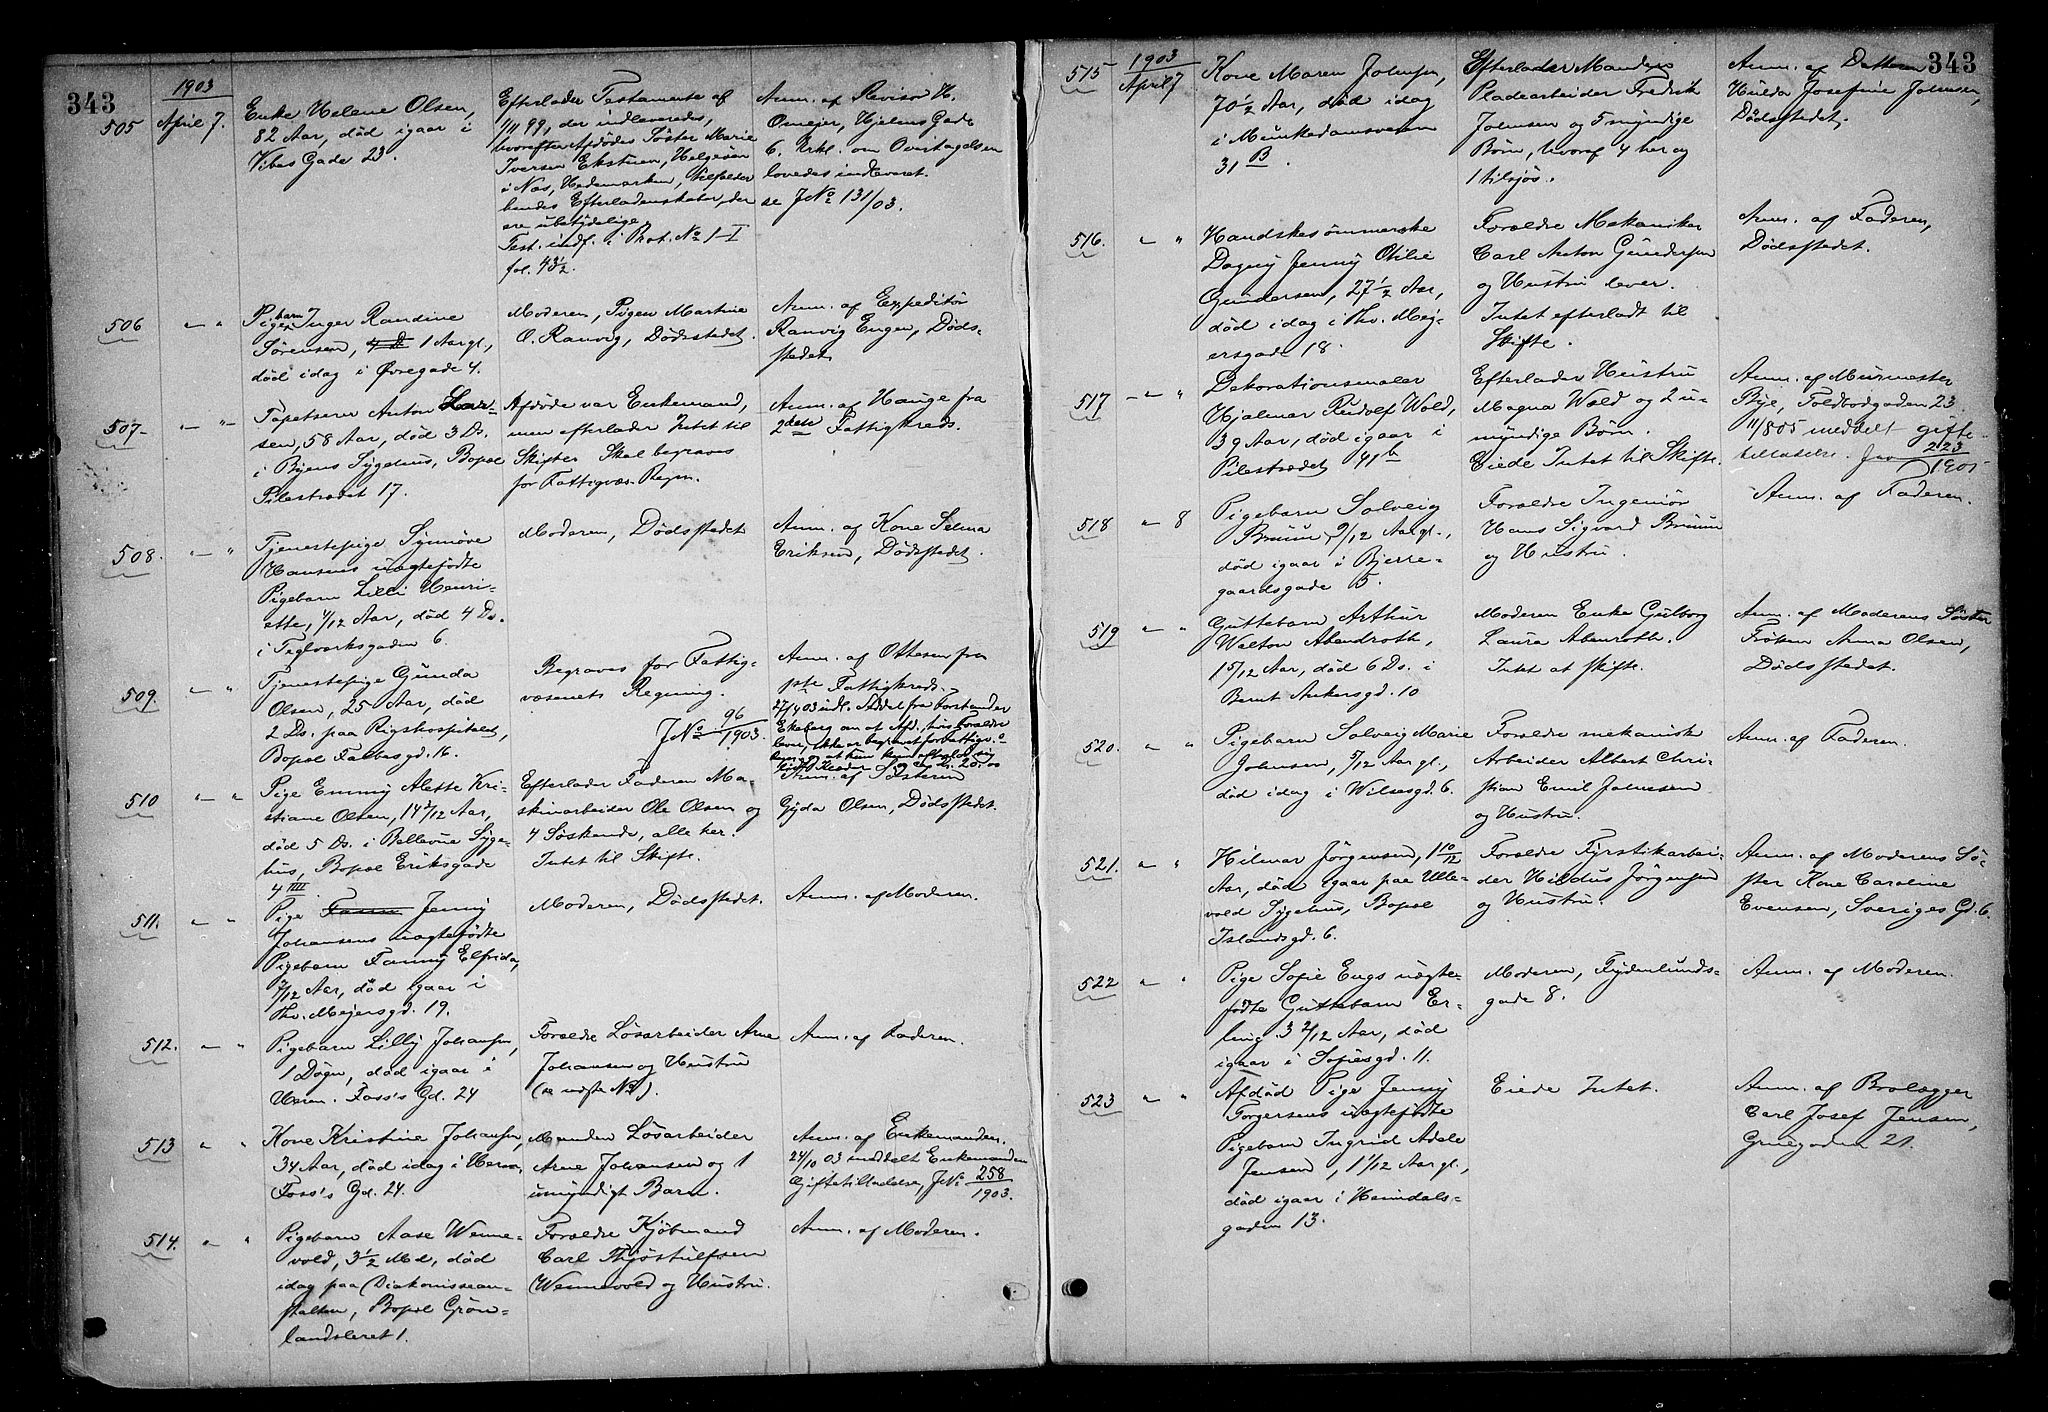 343
1903
505
April 7.
Enke Helene Olsen,
82 Aar, død igaar i
Vibes Gade 23.
Efterlader Testamente af
1/11 99, der indleveredes,
hvorefter Afdødes Søster Marie
Iversen Ekstuen, Helgøen
i Næs, Hedemarken, tilfalder
hendes Efterladenskaber, der
ere ubetydelige.
Test. indf. i Prot. No 1-I
fol. 43½.
Anm. af Revisor H.
Omejer, Hjelms Gade
6. Erkl. om Overtagelsen
lovedes indleveret.
se JNo 131/03.
506
" "
Pigebarn Inger Randine
Sørensen, 1 Aar gl.,
død idag i Øvregade 4.
Moderen, Pigen Martine
O. Ranvig, Dødsstedet.
Anm. af Expeditør
Ranvig Engen, Døds-
stedet.
507
" "
Tapetserer Anton Lar-
sen, 58 Aar, død 3 Ds.
i Byens Sygehus, Bopæl
Pilestrædet 17.
Afdøde var Enkemand,
men efterlader Intet til
Skifte. Skal begraves
for Fattigvæs. Regn.
Anm. af Hauge fra
2den Fattigkreds.
508.
" "
Tjenestepige Synnøve
Hansens uægtefødte
Pigebarn Lilli Henri-
ette, 1/12 Aar, død 4 Ds.
i Teglverksgaden 6
Moderen, Dødsstedet
Anm. af Kone Selma
Eriksen, Dødsstedet.
509.
" "
Tjenestepige Gunda
Olsen, 25 Aar, død
2 Ds. paa Rigshospitalet,
Bopæl Falbesgd. 16.
Begraves for Fattig-
væsenets Regning.
JNo 96/1903.
Anm. af Ottesen fra
1ste Fattigkreds.
27/4 03 indl. Meddel. fra Forstander
Ekeberg om at Afd., hvis Forældre
lever, ikke er begravet for Fattigv.s
Regning og at hun kun efterlod sig
Kr. 20.00
510
" "
Pige Emmy Alette Kri-
stiane Olsen, 14 2/12 Aar,
død 5 Ds. i Bellevue Syge-
hus, Bopæl Eriksgade
4 IIII
Efterlader Faderen Ma-
skinarbeider Ole Olsen og
4 Søskende, alle her.
Intet til Skifte.
Anm. af Søsteren
Gyda Olsen, Dødsstedet.
511.
" "
Pige Jenny
Johansens uægtefødte
Pigebarn Fanny Elfrida,
2/12 Aar, død igaar i
Thv. Meyersgd. 19.
Moderen, Dødsstedet.
Anm. af Moderen.
512.
" "
Pigebarn Lilly Johansen,
1 Døgn, død igaar i
Heren. Foss's Gd. 24
Forældre Løsarbeider Arne
Johansen og Hustru
(se næste No).
Anm. af Faderen.
513
" "
Kone Kristine Johansen,
34 Aar, død idag i Heren.
Foss's Gd. 24.
Manden Løsarbeider
Arne Johansen og 1
umyndigt Barn.
Anm. af Enkemanden.
24/10 03 meddelt Enkemanden
Giftetilladelse, JNo 258/1903.
514.
" "
Pigebarn Aase Wenne-
vold, 3½ Md., død
idag paa Diakonissean-
stalten, Bopæl Grøn-
landsleret 1.
Forældre Kjøbmand
Carl Thjøstulfsen
Wennevold og Hustru.
Anm. af Moderen.
343
1903
515
April 7
Kone Maren Johnsen,
70½ Aar, død idag
i Munkedamsveien
31 B.
Efterlader Manden
Pladearbeider Fredrik
Johnsen og 5 myndige
Børn, hvoraf 4 her og
1 tilsjøs.
Anm. af Datteren
Hulda Josefine Johnsen,
Dødsstedet.
516.
" "
Handskesømmerske
Dagny Jenny Otilie
Gundersen, 27½ Aar,
død idag i Thv. Mey-
ersgade 18.
Forældre Mekaniker
Carl Anton Gundersen
og Hustru lever.
Intet efterladt til
Skifte.
Anm. af Faderen,
Dødsstedet.
517
" "
Dekorationsmaler
Hjalmar Rudolf Wold,
39 Aar, død igaar i
Pilestrædet 41 b
Efterlader Hustru
Magna Wold og 2 u-
myndige Børn.
Eiede Intet til Skifte.
Anm. af Murmester
Bye, Toldbodgaden 23.
11/8 05 meddelt gifte-
tilladelse. Jno 223/1905
518
" 8
Pigebarn Solveig
Bruun, 9/12 Aar gl.,
død igaar i Bjerre-
gaardsgade 5.
Forældre Ingeniør
Hans Sigvard Bruun
og Hustru.
Anm. af Faderen.
519
" "
Guttebarn Arthur
Walton Abendroth,
1 5/12 Aar, død 6 Ds. i
Bernt Ankersgd. 10
Moderen Enke Gulborg
Laura Abenroth.
Intet at skifte.
Anm. af Moderens Søster
Frøken Anna Olsen,
Dødsstedet.
520.
" "
Pigebarn Solveig Marie
Johnsen, 5/12 Aar gl.,
død idag i Wilsesgd. 6.
Forældre mekanisk
Arbeider Albert Chri-
stian Emil Johnsen
og Hustru.
Anm. af Faderen.
521.
" "
Hilmar Jørgensen, 1 10/12
Aar, død igaar paa Ulle-
vold Sygehus, Bopæl
Islandsgd. 6.
Forældre Fyrstikarbei-
der Hildus Jørgensen
og Hustru.
Anm. af Moderens Sø-
ster Kone Caroline
Evensen, Sveriges Gd. 6.
522
" "
Pige Sofie Engs uægte-
fødte Guttebarn Er-
ling 3 2/12 Aar, død
igaar i Sofiesgd. 11.
Moderen, Frydenlunds-
gade 8.
Anm. af Moderen.
523
" "
Afdød Pige Jenny
Torgersens uægtefødte
Pigebarn Ingrid Adele
Jensen, 1 1/12 Aar gl.,
død igaar i Heimdals-
gaden 13.
Eiede Intet.
Anm. af Brolægger
Carl Josef Jensen,
Gruegaden 21.